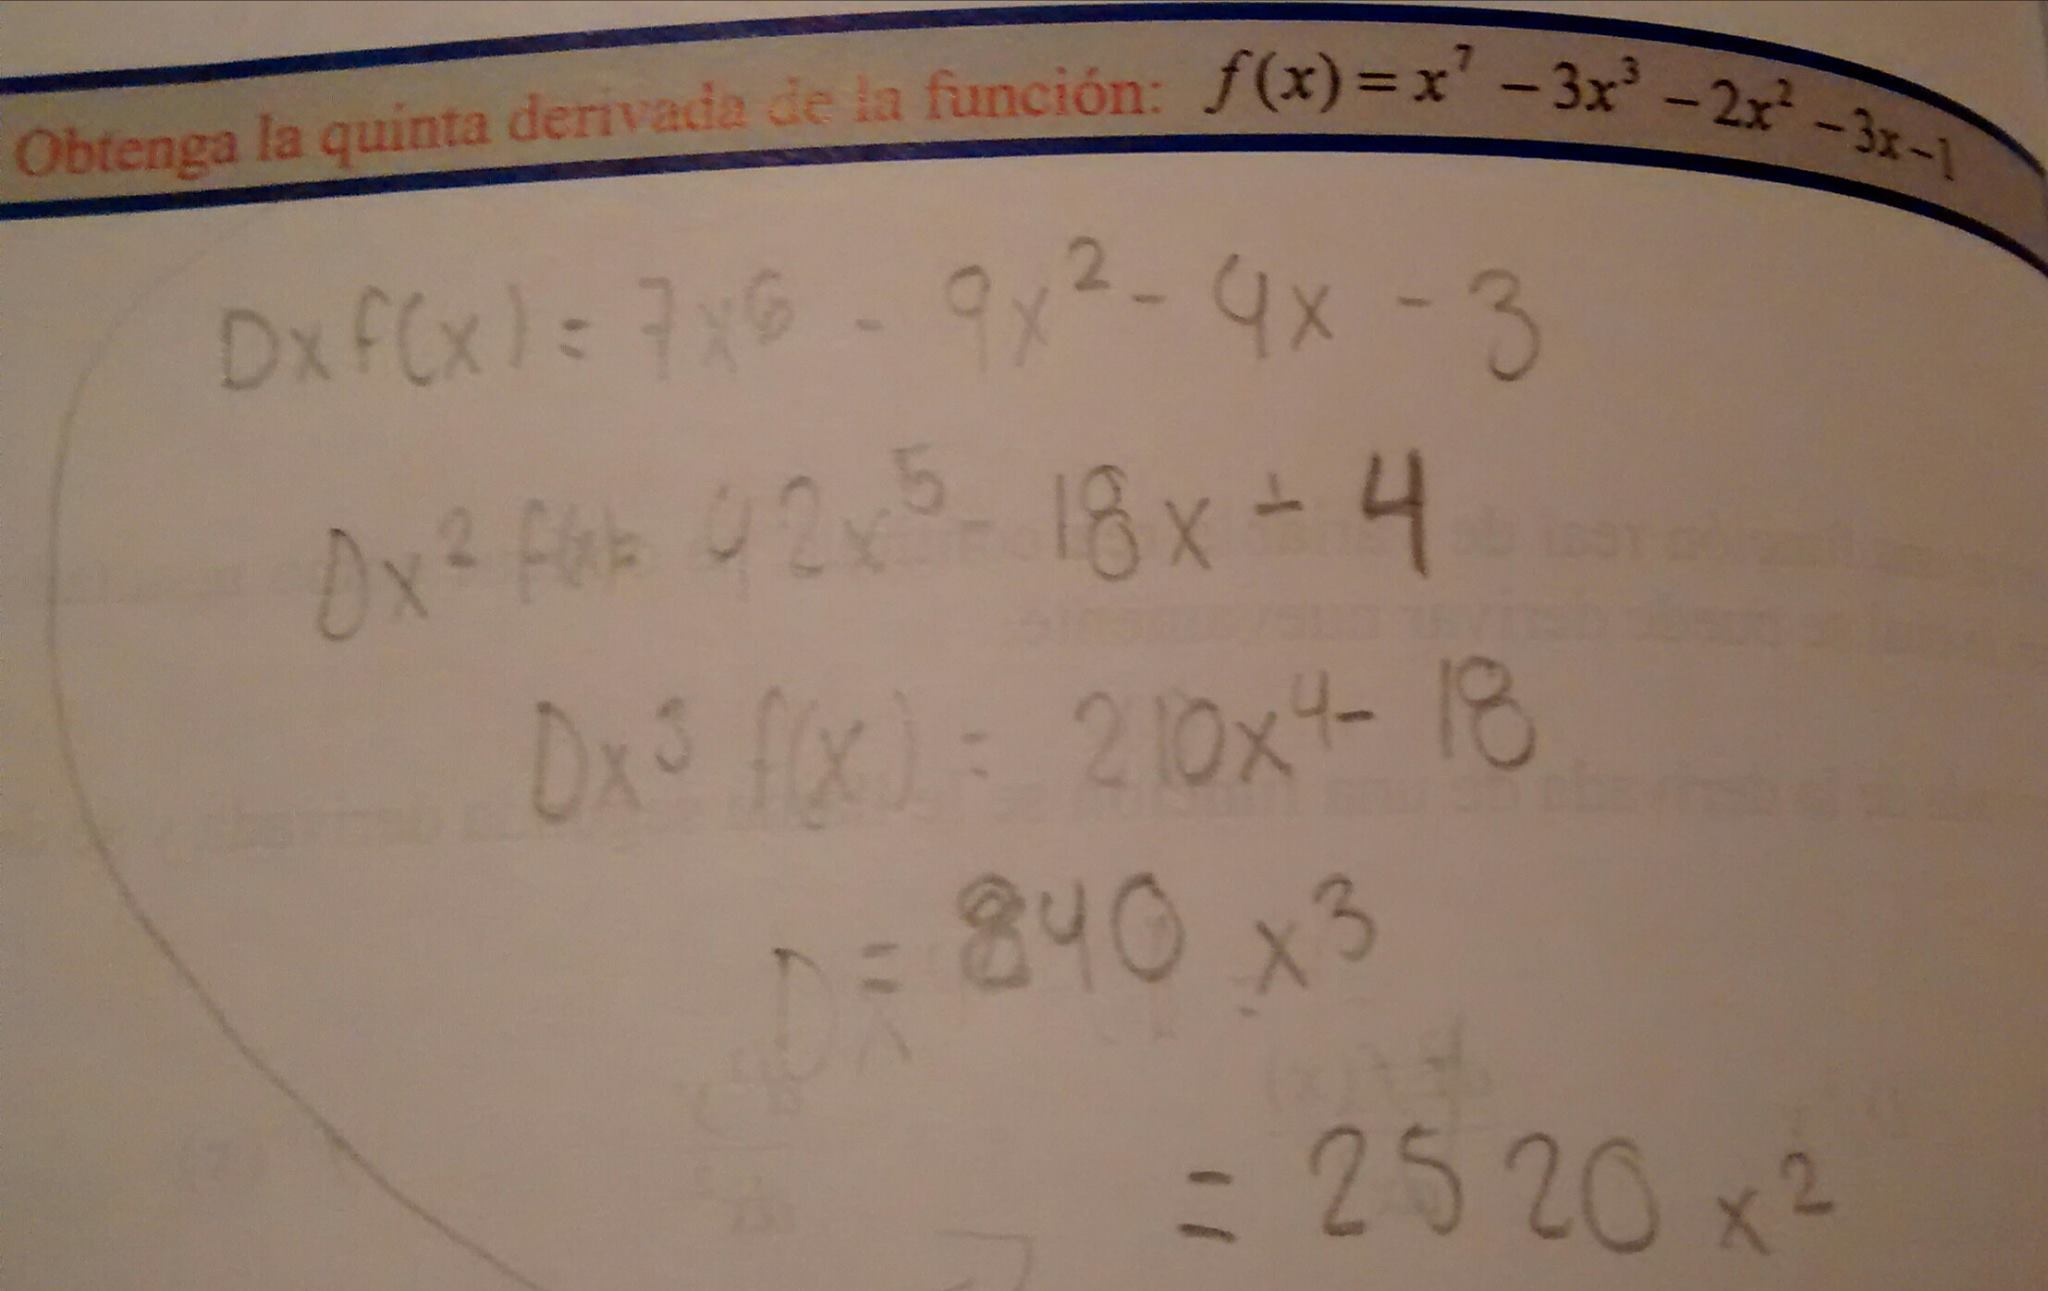 Obtenga la quinta derivada de la función: f(x) = x⁷ − 3x³ − 2x² − 3x − 1
Dx f(x) = 7x⁶ - 9x² - 4x - 3
Dx² f(x) = 42x⁵ - 18x - 4
Dx³ f(x) = 210x⁴ - 18
Dx = 840 x³
= 2520 x²